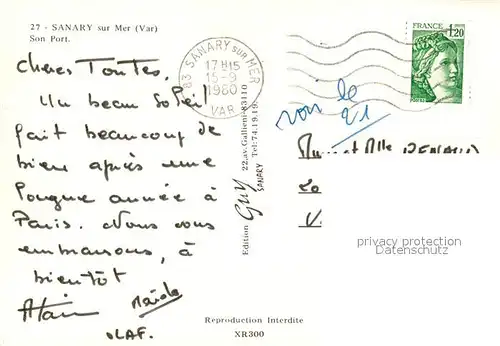 27 - SANARY sur Mer (Var)
Son Port.
83 SANARY sur MER
17 H15
15-9
1980
VAR
FRANCE 1,20
POSTES
Cheres Toutes,
Un beau Soleil
fait beaucoup de
bien après une
longue année à
Paris. Nous vous
embrassons, à
bientôt
Alain
OLAF.
Edition Guy 22,av.Gallieni-83110
SANARY Tel:74.19.19.
voir le
21
et Mlle RENAUD
privacy protection
watermark
Reproduction Interdite
XR300